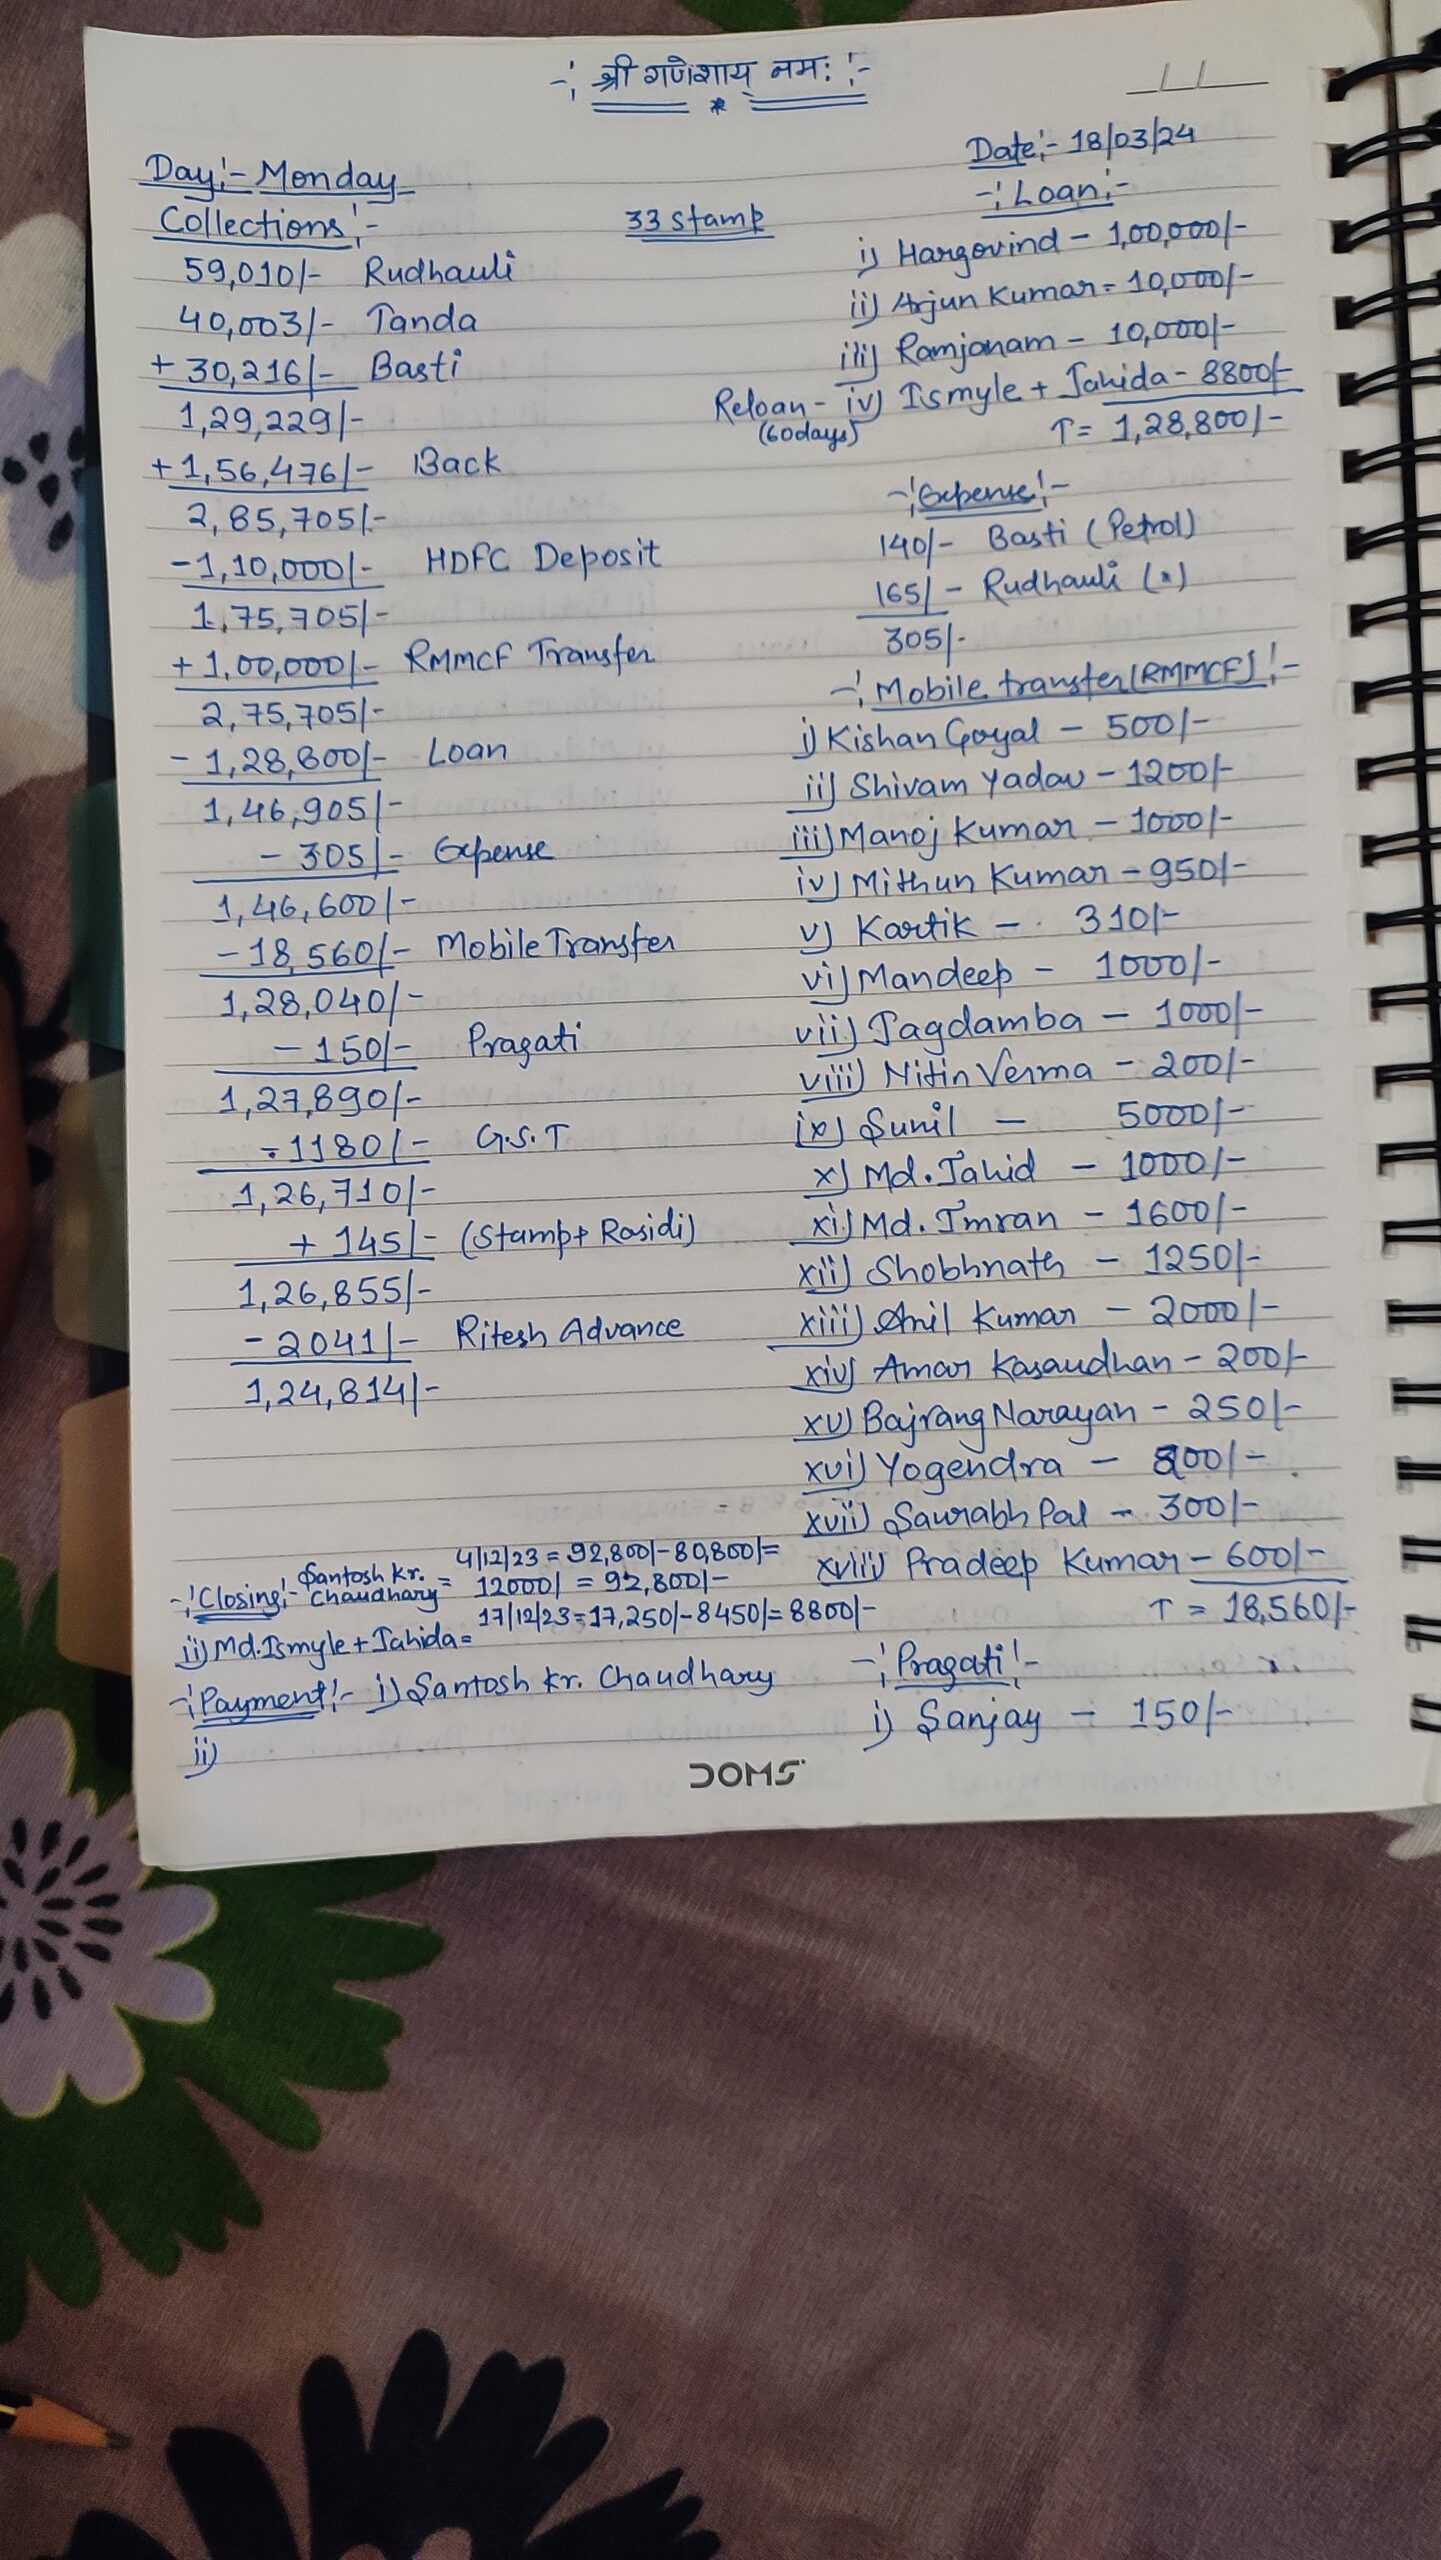 -: श्री गणेशाय् नमः :-
*
Day:- Monday
Date:- 18/03/24
Collections:-
33 Stamp
59,010/- Rudhauli
40,003/- Tanda
+ 30,216/- Basti
1,29,229/-
+ 1,56,476/- Back
2,85,705/-
- 1,10,000/- HDFC Deposit
1,75,705/-
+ 1,00,000/- RMMCF Transfer
2,75,705/-
- 1,28,800/- Loan
1,46,905/-
- 305/- Expense
1,46,600/-
- 18,560/- Mobile Transfer
1,28,040/-
- 150/- Pragati
1,27,890/-
- 1180/- G.S.T
1,26,710/-
+ 145/- (Stamp+ Rasidi)
1,26,855/-
- 2041/- Ritesh Advance
1,24,814/-
-: Loan:-
i) Hargovind - 1,00,000/-
ii) Arjun Kumar = 10,000/-
iii) Ramjanam - 10,000/-
Reloan - iv) Ismyle + Jahida - 8800/-
(60days)
T = 1,28,800/-
-: Expense:-
140/- Basti (Petrol)
165/- Rudhauli (")
305/-
-: Mobile transfer (RMMCF) :-
i) Kishan Goyal - 500/-
ii) Shivam Yadav - 1200/-
iii) Manoj Kumar - 1000/-
iv) Mithun Kumar - 950/-
v) Kartik - 310/-
vi) Mandeep - 1000/-
vii) Jagdamba - 1000/-
viii) Nitin Verma - 200/-
ix) Sunil - 5000/-
x) Md. Jahid - 1000/-
xi) Md. Imran - 1600/-
xii) Shobhnath - 1250/-
xiii) Anil Kumar - 2000/-
xiv) Amar Kasaudhan - 200/-
xv) Bajrang Narayan - 250/-
xvi) Yogendra - 200/-
xvii) Saurabh Pal - 300/-
xviii) Pradeep Kumar - 600/-
T = 18,560/-
-: Closing:- Santosh Kr. Chaudhary = 4/12/23 = 92,800/- - 80,800/- =
12000/ = 92,800/-
ii) Md. Ismyle + Jahida = 17/12/23 = 17,250/- - 8450/- = 8800/-
-: Payment:- i) Santosh Kr. Chaudhary
ii)
-: Pragati:-
i) Sanjay - 150/-
DOMS